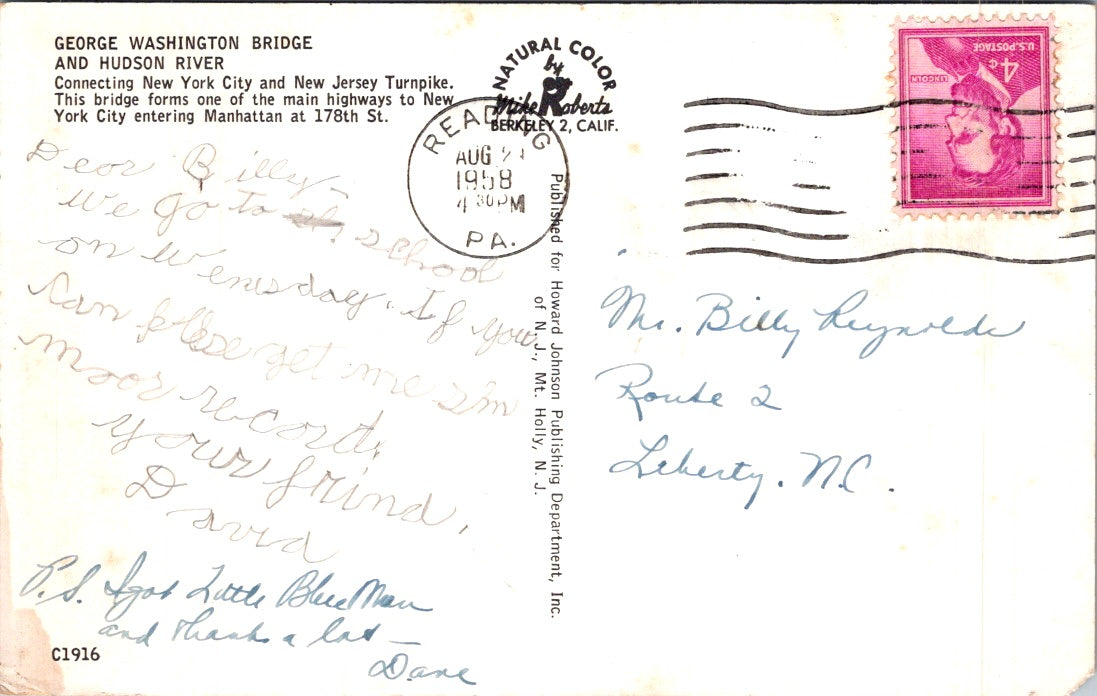 GEORGE WASHINGTON BRIDGE
AND HUDSON RIVER
Connecting New York City and New Jersey Turnpike.
This bridge forms one of the main highways to New
York City entering Manhattan at 178th St.
NATURAL COLOR
by
Mike Roberts
BERKELEY 2, CALIF.
READING
AUG
1958
4 30 PM
PA.
U.S. POSTAGE
4¢
LINCOLN
Dear Billy-
We go to school
on Wenesday. If you
can please get me sum
moor record.
Your frind,
David
P.S. I got Little Blue Man
and thanks a lot —
Dave
C1916
Published for Howard Johnson Publishing Department, Inc.
of N. J., Mt. Holly, N. J.
Mr. Billy Reynolds
Route 2
Liberty, N.C.